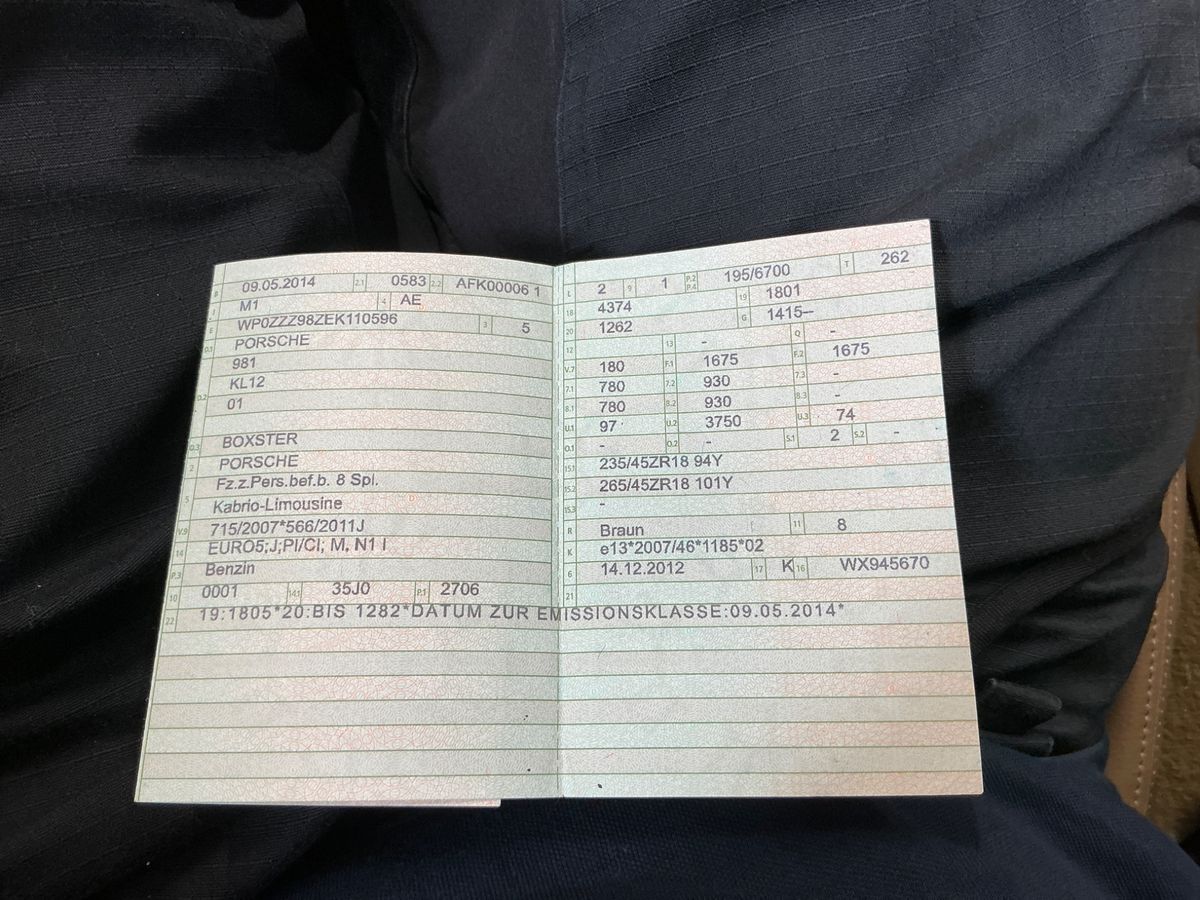 B 09.05.2014 2.1 0583 2.2 AFK00006 1
J M1 4 AE
E WP0ZZZ98ZEK110596 3 5
D.1 PORSCHE
981
D.2 KL12
01
D.3 BOXSTER
2 PORSCHE
Fz.z.Pers.bef.b. 8 Spl.
5 Kabrio-Limousine
V.9 715/2007*566/2011J
14 EURO5;J;PI/CI; M, N1 I
P.3 Benzin
10 0001 14.1 35J0 P.1 2706
22 19:1805*20:BIS 1282*DATUM ZUR EMISSIONSKLASSE:09.05.2014*
L 2 9 1 P.2 P.4 195/6700 T 262
18 4374 19 1801
20 1262 G 1415--
12 13 - Q -
V.7 180 F.1 1675 F.2 1675
7.1 780 7.2 930 7.3 -
8.1 780 8.2 930 8.3 -
U.1 97 U.2 3750 U.3 74
O.1 - O.2 - S.1 2 S.2 -
15.1 235/45ZR18 94Y
15.2 265/45ZR18 101Y
15.3 -
R Braun 11 8
K e13*2007/46*1185*02
6 14.12.2012 17 K 16 WX945670
21